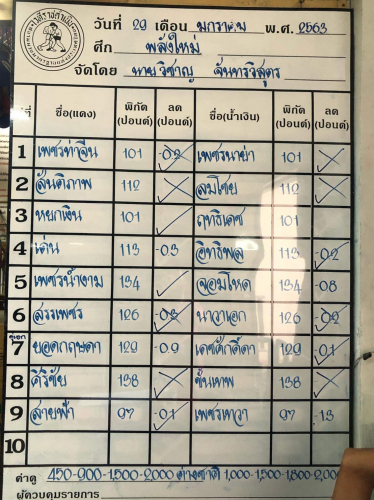 วันที่ 29 เดือน มกราคม พ.ศ. 2563
ศึก พลังใหม่
จัดโดย นายวิชาญ จันทรวิสุตร
คู่ที่ ชื่อ(แดง) พิกัด (ปอนด์) ลด (ปอนด์) ชื่อ(น้ำเงิน) พิกัด (ปอนด์) ลด (ปอนด์)
1 เพชรท่าจีน 101 -02 เพชรนาย่า 101
2 สันติภาพ 112 ลมโชย 112
3 หยกเงิน 101 ฤทธิเดช 101
4 เด่น 113 -03 อิทธิพล 113 -02
5 เพชรน้ำงาม 134 จอมโหด 134 -08
6 สรรเพชร 126 -03 นาวาเอก 126 -02
คู่เอก
7 ยอดกฤษดา 129 -09 เดชศักดิ์ดา 129 -01
8 ศิริชัย 138 ขุนเทพ 138
9 สายฟ้า 97 -01 เพชรเทวา 97 -13
10
ค่าดู 450-900-1,500-2,000 ต่างชาติ 1,000-1,500-1,800-2,000
ผู้ควบคุมรายการ